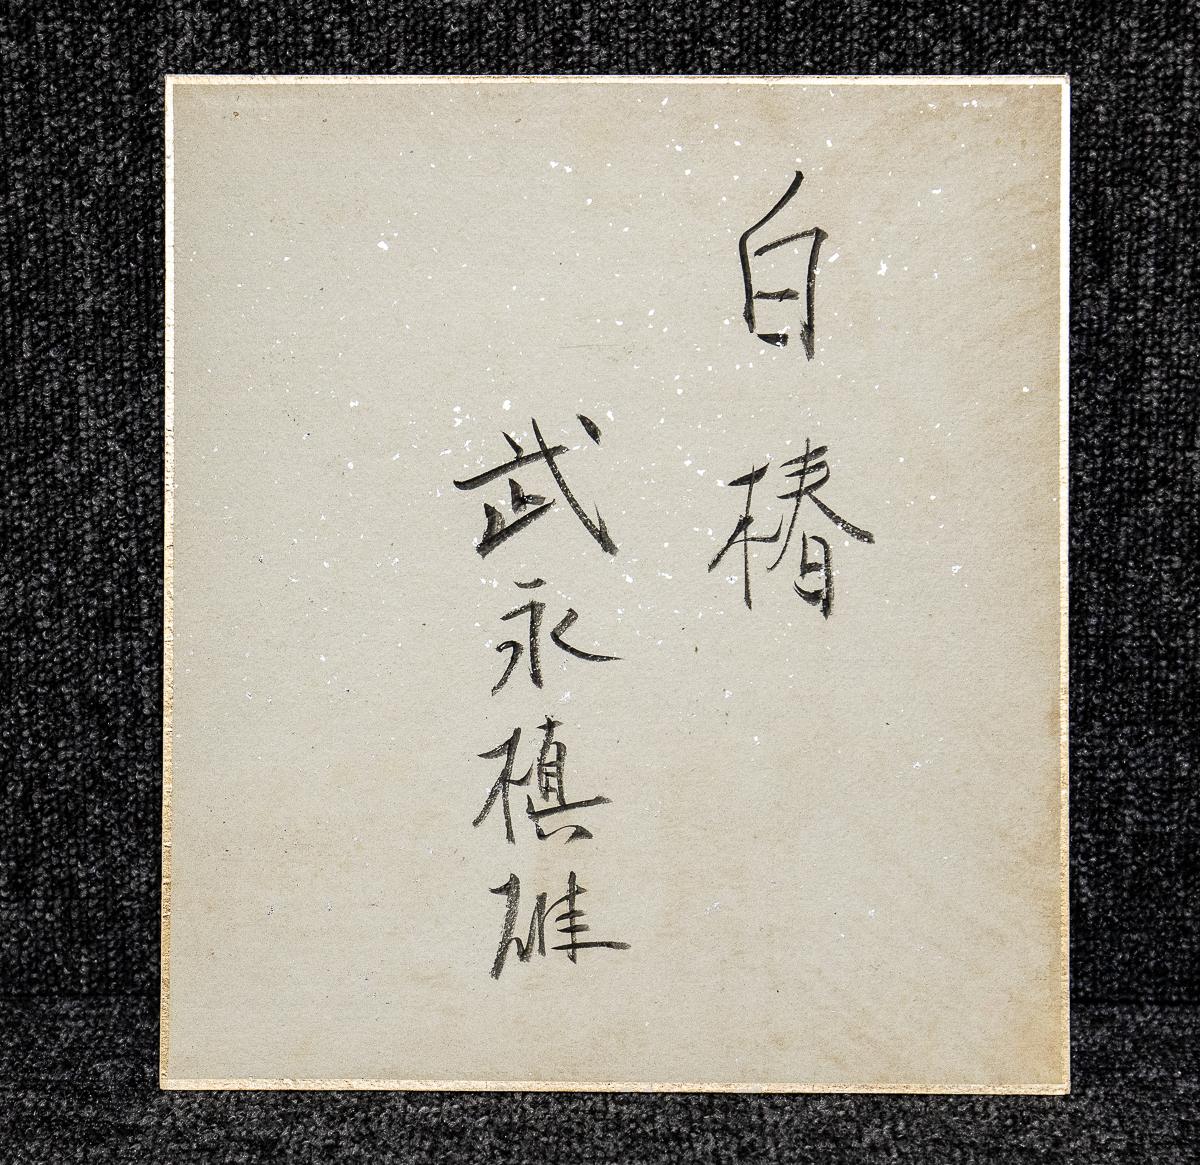 白椿
武永槙雄